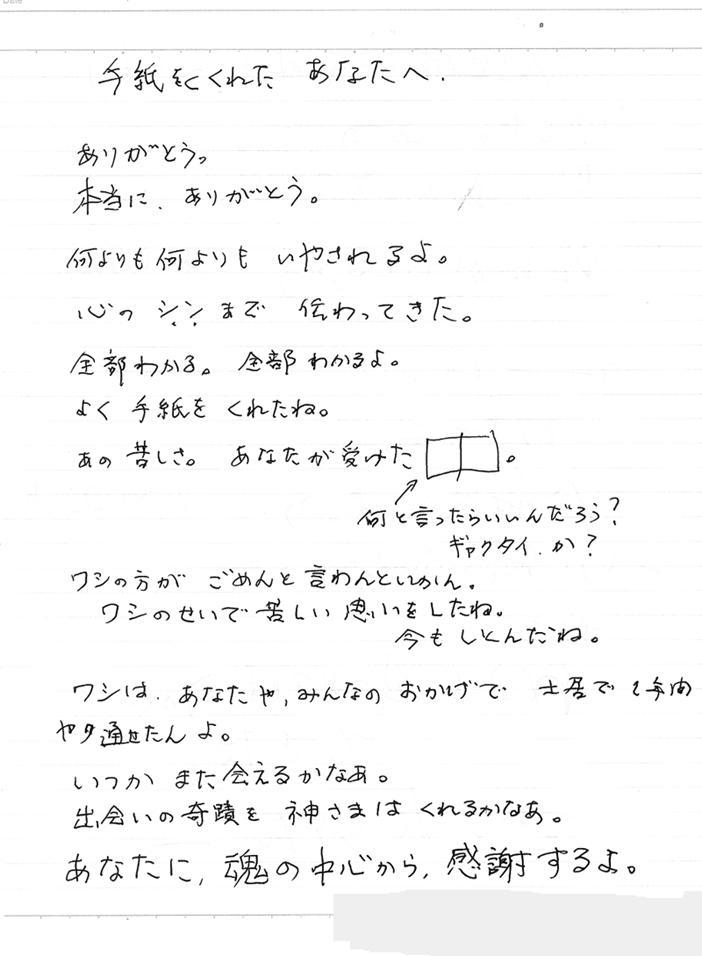 Date
手紙をくれた あなたへ.
ありがとう。
本当に、ありがとう。
何よりも何よりも いやされるよ。
心の シンまで 伝わってきた。
全部わかる。全部わかるよ。
よく 手紙を くれたね。
あの 苦しさ。 あなたが受けた 。
何と言ったらいいんだろう?
ギャクタイ、か?
ワシの方が ごめんと言わんといかん。
ワシのせいで 苦しい 思いをしたね。
今も しとんだね。
ワシは、あなたや、みんなの おかげで 土居で 2年間
ヤリ通せたんよ。
いつか また会えるかなあ。
出会いの奇蹟を 神さまは くれるかなあ。
あなたに、魂の中心から、感謝するよ。